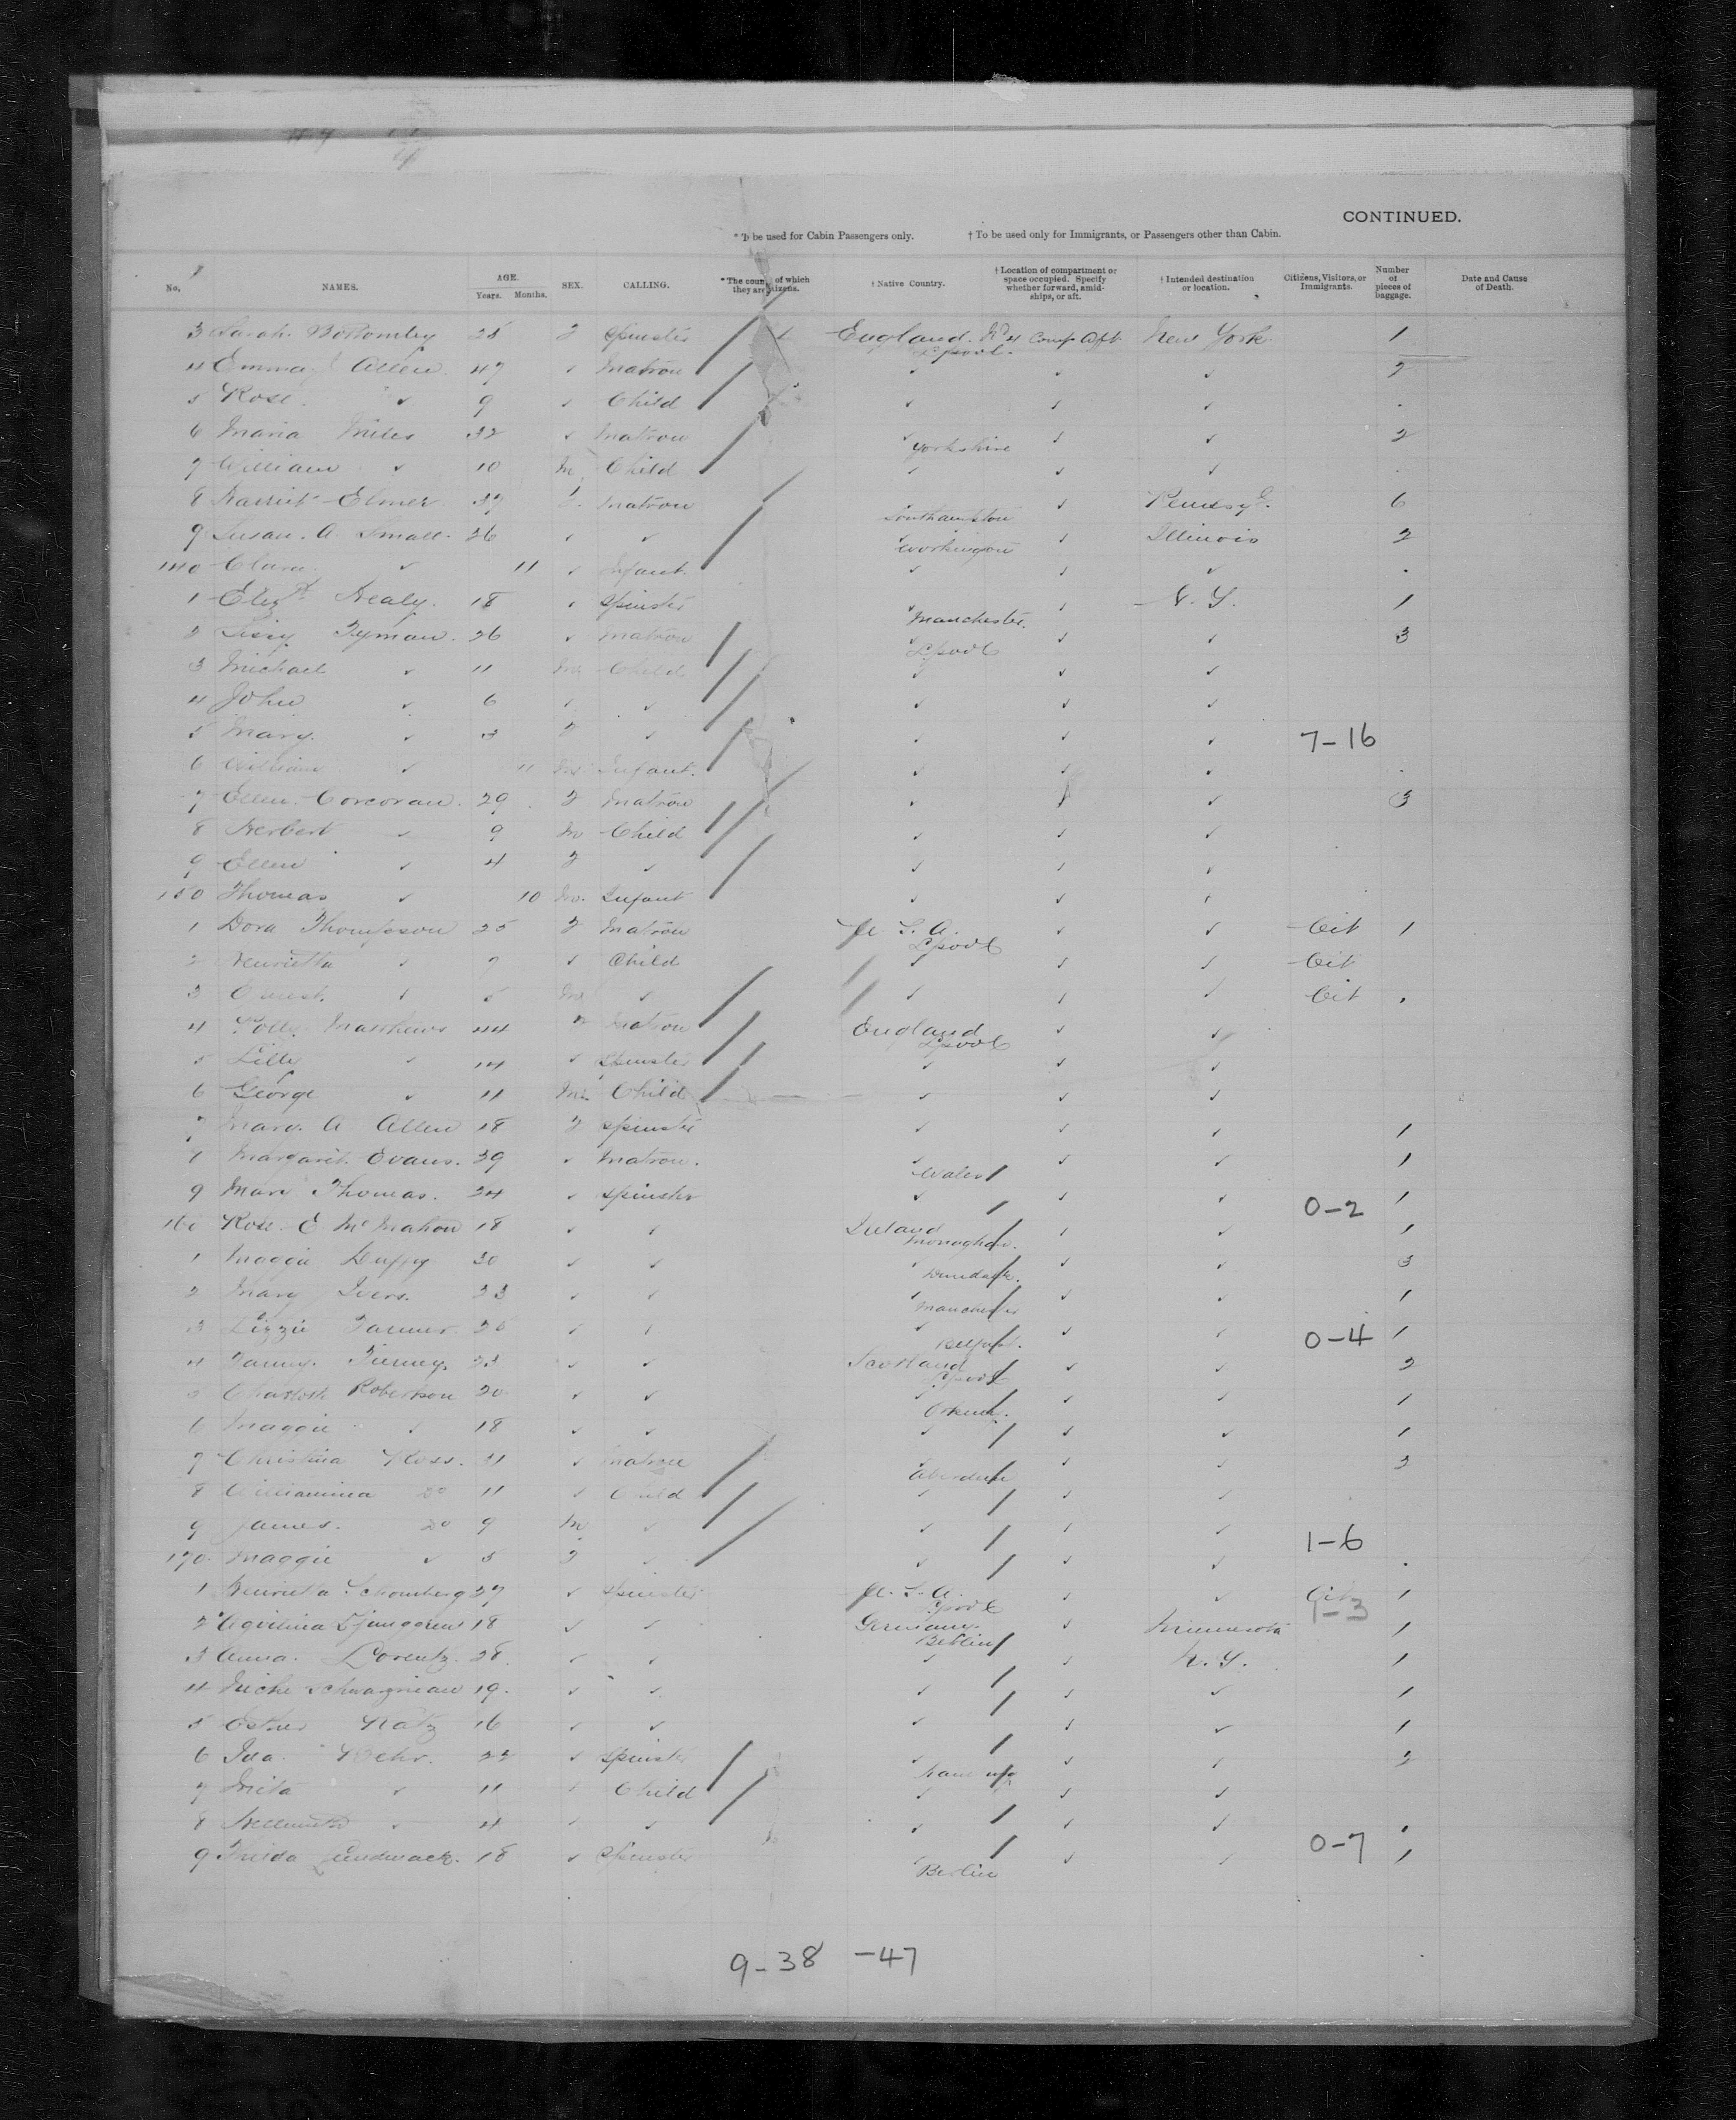 CONTINUED.
* To be used for Cabin Passengers only. † To be used only for Immigrants, or Passengers other than Cabin.
No. NAMES. AGE. Years. Months. SEX. CALLING. * The coun of which they are tizens. † Native Country. † Location of compartment or space occupied. Specify whether forward, amid-ships, or aft. † Intended destination or location. Citizens, Visitors, or Immigrants. Number of pieces of baggage. Date and Cause of Death.
3 Sarah Bottomley 25 F Spinster England. Lpool. Comp Aft New York 1
4 Emma Allen 47 ✓ Matron ✓ ✓ ✓ 2
5 Rose ✓ 9 ✓ Child ✓ ✓ ✓
6 Maria Miles 32 ✓ Matron ✓ Yorkshire ✓ ✓ 2
7 William ✓ 10 M Child ✓ ✓ ✓
8 Harriet Elmer 37 F Matron Southampton ✓ 6
9 Susan. A. Small. 26 ✓ ✓ ✓ Workington ✓ Illinois 2
140 Clara ✓ 11 ✓ Infant. ✓ ✓ ✓
1 Elizth Healy. 18 ✓ Spinster ✓ Manchester. ✓ N. Y. 1
2 Tyman. 26 ✓ Matron ✓ Lpool ✓ ✓ 3
3 Michael ✓ 11 M Child ✓ ✓ ✓
4 John ✓ 6 ✓ ✓ ✓ ✓ ✓
5 Mary. ✓ 3 F ✓ ✓ ✓ ✓ 7-16
6 William ✓ 11 M Infant. ✓ ✓ ✓
7 Ellen Corcoran. 29 F Matron ✓ ✓ ✓ 3
8 Herbert ✓ 9 M Child ✓ ✓ ✓
9 Ellen ✓ 4 F ✓ ✓ ✓ ✓
150 Thomas ✓ 10 M. Infant ✓ ✓ ✓
1 Dora Thompson 25 F Matron U. S. A. Lpool ✓ ✓ Cit 1
2 Henrietta ✓ 7 ✓ Child ✓ ✓ ✓ Cit
3 Ernest. ✓ 5 M ✓ ✓ ✓ ✓ Cit
4 Polly Matthews 44 F Matron England Lpool ✓ ✓
5 Lilly ✓ 14 ✓ Spinster ✓ ✓ ✓
6 George ✓ 11 M Child ✓ ✓ ✓
7 Mary. A Allen 18 F Spinster ✓ ✓ ✓ 1
8 Margaret Evans. 39 ✓ Matron. ✓ Wales ✓ ✓ 1
9 Mary Thomas. 24 ✓ Spinster ✓ ✓ ✓ 0-2 1
160 Rose E McMahon 18 ✓ ✓ Ireland Monaghan. ✓ ✓ 1
1 Maggie Duffy 30 ✓ ✓ ✓ Dundalk. ✓ ✓ 3
2 Mary Ivers. 23 ✓ ✓ ✓ Manchester ✓ ✓ 1
3 Lizzie Farmer. 20 ✓ ✓ ✓ Belfast. ✓ ✓ 0-4 1
4 Fanny. Tierney. 23 ✓ ✓ Scotland Lpool ✓ ✓ 2
5 Charlotte Robertson 20 ✓ ✓ ✓ ✓ ✓ 1
6 Maggie ✓ 18 ✓ ✓ ✓ ✓ ✓ 1
7 Christina Ross. 31 ✓ Matron ✓ Aberdeen ✓ ✓ 2
8 Williamina Do 11 ✓ Child ✓ ✓ ✓
9 James. Do 9 M ✓ ✓ ✓ ✓ 1-6
170. Maggie ✓ 5 F ✓ ✓ ✓ ✓
1 Henrietta Schomberg 27 ✓ Spinster U. S. A. Lpool ✓ ✓ Cit 1
1-3
2 Ljunggren 18 ✓ ✓ Germany. Berlin ✓ Minnesota 1
3 Anna. Lorentz. 28. ✓ ✓ ✓ ✓ N. Y. 1
4 19. ✓ ✓ ✓ ✓ ✓ 1
5 Esther Katz 16 ✓ ✓ ✓ ✓ ✓ 1
6 Ida. 22 ✓ Spinster ✓ Hamburg ✓ ✓ 2
7 Meta ✓ 11 ✓ Child ✓ ✓ ✓
8 Hellmuth ✓ 4 ✓ ✓ ✓ ✓ ✓
0-7
9 18 ✓ Spinster ✓ Berlin ✓ ✓ 1
9-38 -47